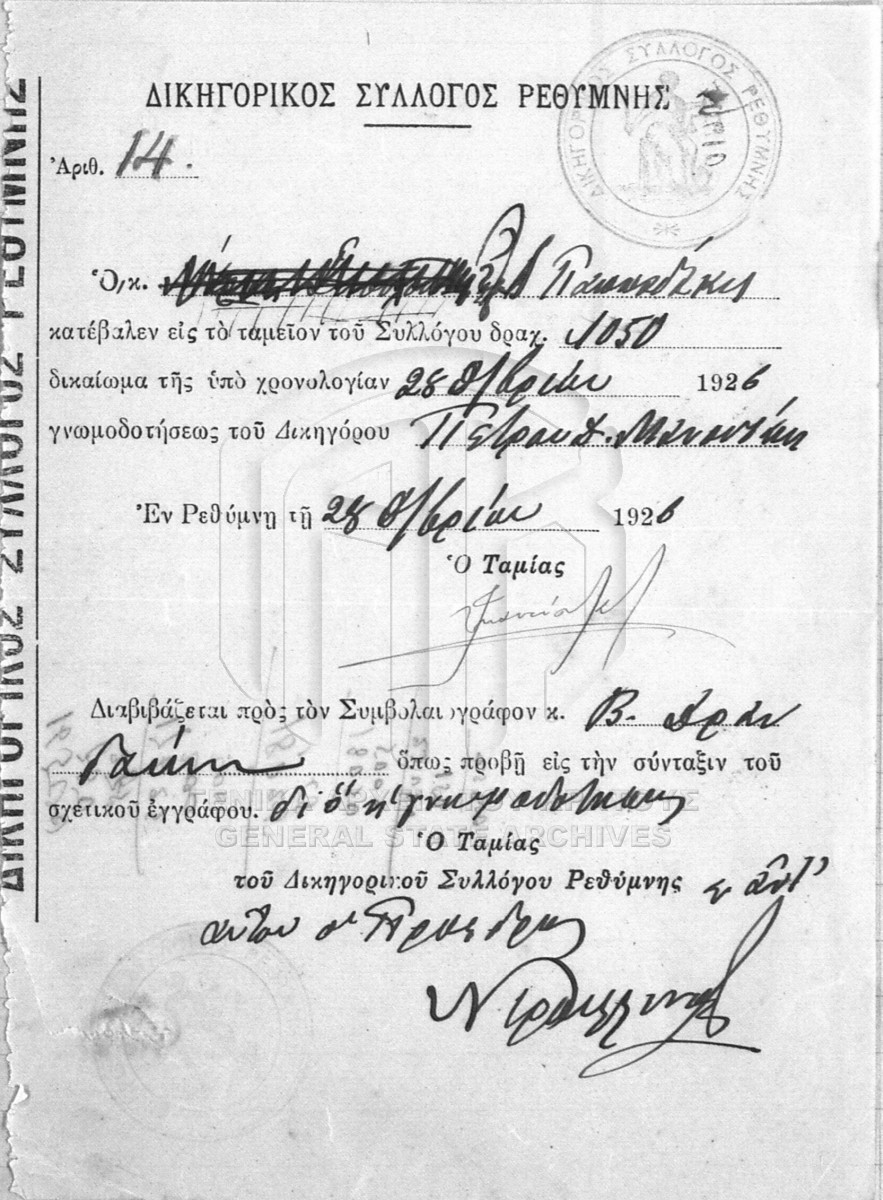 ΔΙΚΗΓΟΡΙΚΟΣ ΣΥΛΛΟΓΟΣ ΡΕΘΥΜΝΗΣ
ΔΙΚΗΓΟΡΙΚΟΣ ΣΥΛΛΟΓΟΣ ΡΕΘΥΜΝΗΣ
Ἀριθ. 14.
Ὁ, κ. Παπαδάκη
κατέβαλεν εἰς τὸ ταμεῖον τοῦ Συλλόγου δραχ. 1050
δικαίωμα τῆς ὑπὸ χρονολογίαν 28 9/βρίου 1926
γνωμοδοτήσεως τοῦ Δικηγόρου Πέτρου
Ἐν Ρεθύμνῃ τῇ 28 9/βρίου 1926
Ὁ Ταμίας
Διαβιβάζεται πρὸς τὸν Συμβολαιογράφον κ. Β.
ὅπως προβῇ εἰς τὴν σύνταξιν τοῦ
σχετικοῦ ἐγγράφου. δι' ὅ ἡ γνωμοδότησις
ΓΕΝΙΚΑ ΑΡΧΕΙΑ ΤΟΥ ΚΡΑΤΟΥΣ
GENERAL STATE ARCHIVES
Ὁ Ταμίας
τοῦ Δικηγορικοῦ Συλλόγου Ρεθύμνης κ ἀντ'
αυτου ο Πρόεδρος
ΔΙΚΗΓΟΡΙΚΟΣ ΣΥΛΛΟΓΟΣ ΡΕΘΥΜΝΗΣ